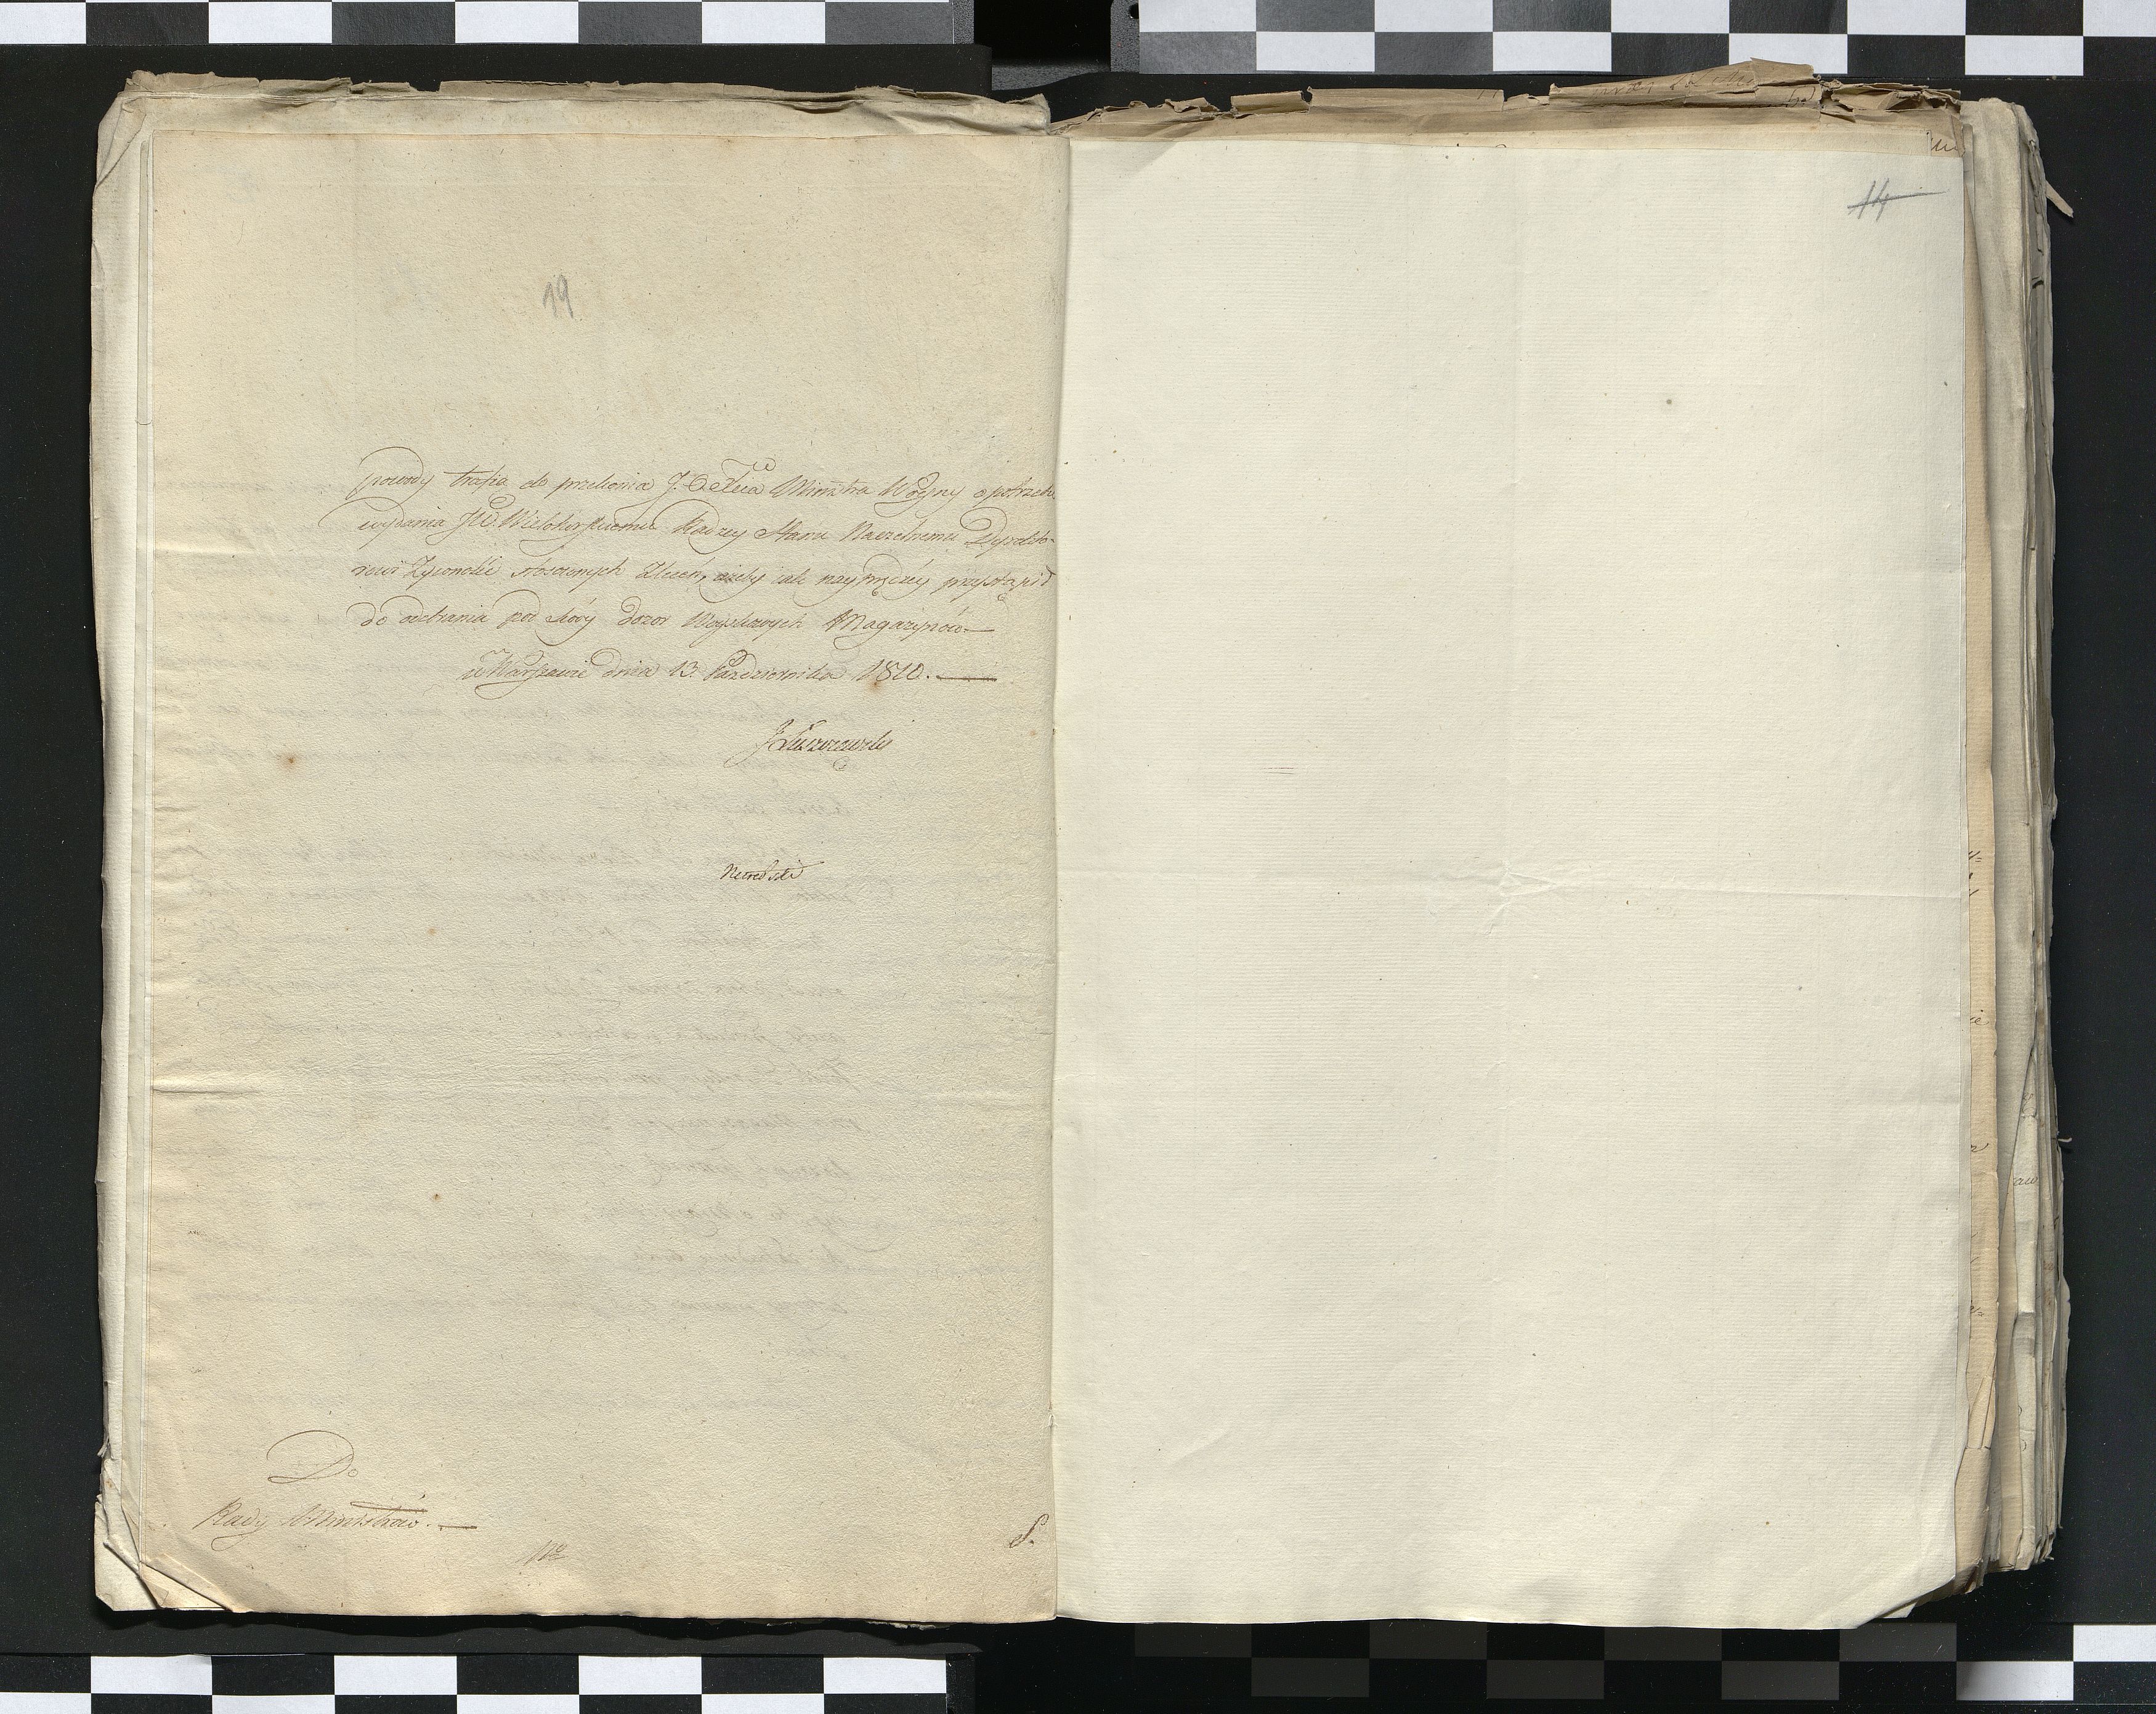 19
powody trafią do przekonia J. O. Xcia Ministra Woyny o potrzebie
wydania JW. Wielohorskiemu Radzcy Stanu Naczelnemu Dyrekto-
rowi Żywności stosownych zleceń, ażeby iak nayprędzéy przystąpił
do odebrania pod swóy dozor Woyskowych Magazynów
w Warszawie dnia 13. Października 1810.
J Łuszczewski
Do
Rady Ministrów.
No
S.
14